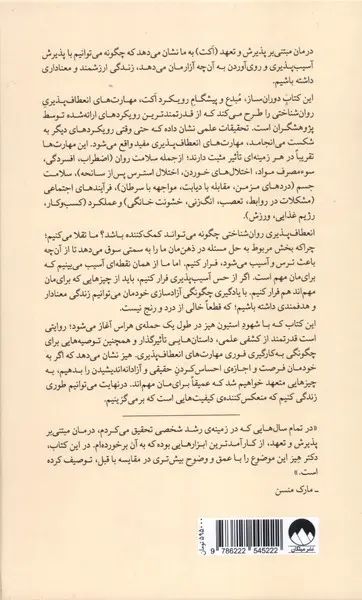 درمان مبتنی بر پذیرش و تعهد (اَکت) به ما نشان می‌دهد که چگونه می‌توانیم با پذیرش
آسیب‌پذیری و روی‌آوردن به آن‌چه آزارمان می‌دهد، زندگی ارزشمند و معناداری
داشته باشیم.
این کتابِ دوران‌ساز، مُبلغ و پیشگامِ رویکرد اَکت، مهارت‌های انعطاف‌پذیریِ
روان‌شناختی را طرح می‌کند که از قدرتمندترین رویکردهای ارائه‌شده توسط
پژوهشگران است. تحقیقات علمی نشان داده که حتی وقتی رویکردهای دیگر به
شکست می‌انجامد، مهارت‌های انعطاف‌پذیری مفید واقع می‌شود. این مهارت‌ها
تقریباً در هر زمینه‌ای تأثیر مثبت دارند؛ ازجمله سلامت روان (اضطراب، افسردگی،
سوءمصرف مواد، اختلال‌های خوردن، اختلال استرس پس از سانحه)، سلامت
جسم (دردهای مزمن، مقابله با دیابت، مواجهه با سرطان)، فرآیندهای اجتماعی
(مشکلات در روابط، تعصب، انگ‌زنی، خشونت خانگی) و عملکرد (کسب‌وکار،
رژیم غذایی، ورزش).
انعطاف‌پذیری روان‌شناختی چگونه می‌تواند کمک‌کننده باشد؟ ما تقلا می‌کنیم؛
چراکه بخش مربوط به حل مسئله در ذهن‌مان ما را به سمتی سوق می‌دهد تا از آن‌چه
باعث ترس و آسیب می‌شود، فرار کنیم. اما ما از همان نقطه‌ای آسیب می‌بینیم که
برای‌مان مهم است. اگر از حس آسیب‌پذیری فرار کنیم، باید از چیزهایی که برای‌مان
مهم‌اند هم فرار کنیم. با یادگیری چگونگی آزادسازی خودمان می‌توانیم زندگی معنادار
و هدفمندی داشته باشیم؛ که قطعاً خالی از درد و رنج نیست.
این کتاب که با شهودِ استیون هیز در طول یک حمله‌ی هراس آغاز می‌شود؛ روایتی
است قدرتمند از کشفی علمی، داستان‌هایی تأثیرگذار و همچنین توصیه‌هایی برای
چگونگی به‌کارگیری فوری مهارت‌های انعطاف‌پذیری. هیز نشان می‌دهد که اگر به
خودمان فرصت و اجازه‌ی احساس‌کردنِ حقیقی و آزادانه‌اندیشیدن را بدهیم، به
چیزهایی متعهد خواهیم شد که عمیقاً برای‌مان مهم‌اند. درنهایت می‌توانیم طوری
زندگی کنیم که منعکس‌کننده‌ی کیفیت‌هایی است که برمی‌گزینیم.
«در تمام سال‌هایی که در زمینه‌ی رشد شخصی تحقیق می‌کردم، درمان مبتنی‌بر
پذیرش و تعهد، از کارآمدترین ابزارهایی بوده که به آن برخورده‌ام. در این کتاب،
دکتر هیز این موضوع را با عمق و وضوح بیش‌تری در مقایسه با قبل، توصیف کرده
است.»
ـ مارک منسن
۵۹۵۰۰۰ تومان
9 786222 545222
نشر میلکان